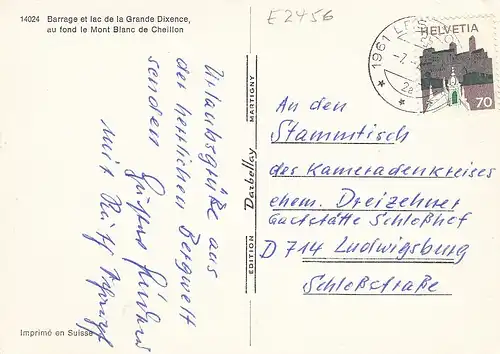 14024 Barrage et lac de la Grande Dixence,
au fond le Mont Blanc de Cheilon
E2456
Urlaubsgrüße aus
der herrlichen Bergwelt
senden
mit
EDITION Darbellay MARTIGNY
1961 LES
HELVETIA
70
An den
Stammtisch
des Kameradenkreises
ehem. Dreizehner
Gaststätte Schloßhof
D 714 Ludwigsburg
Schloßstraße
Imprimé en Suisse